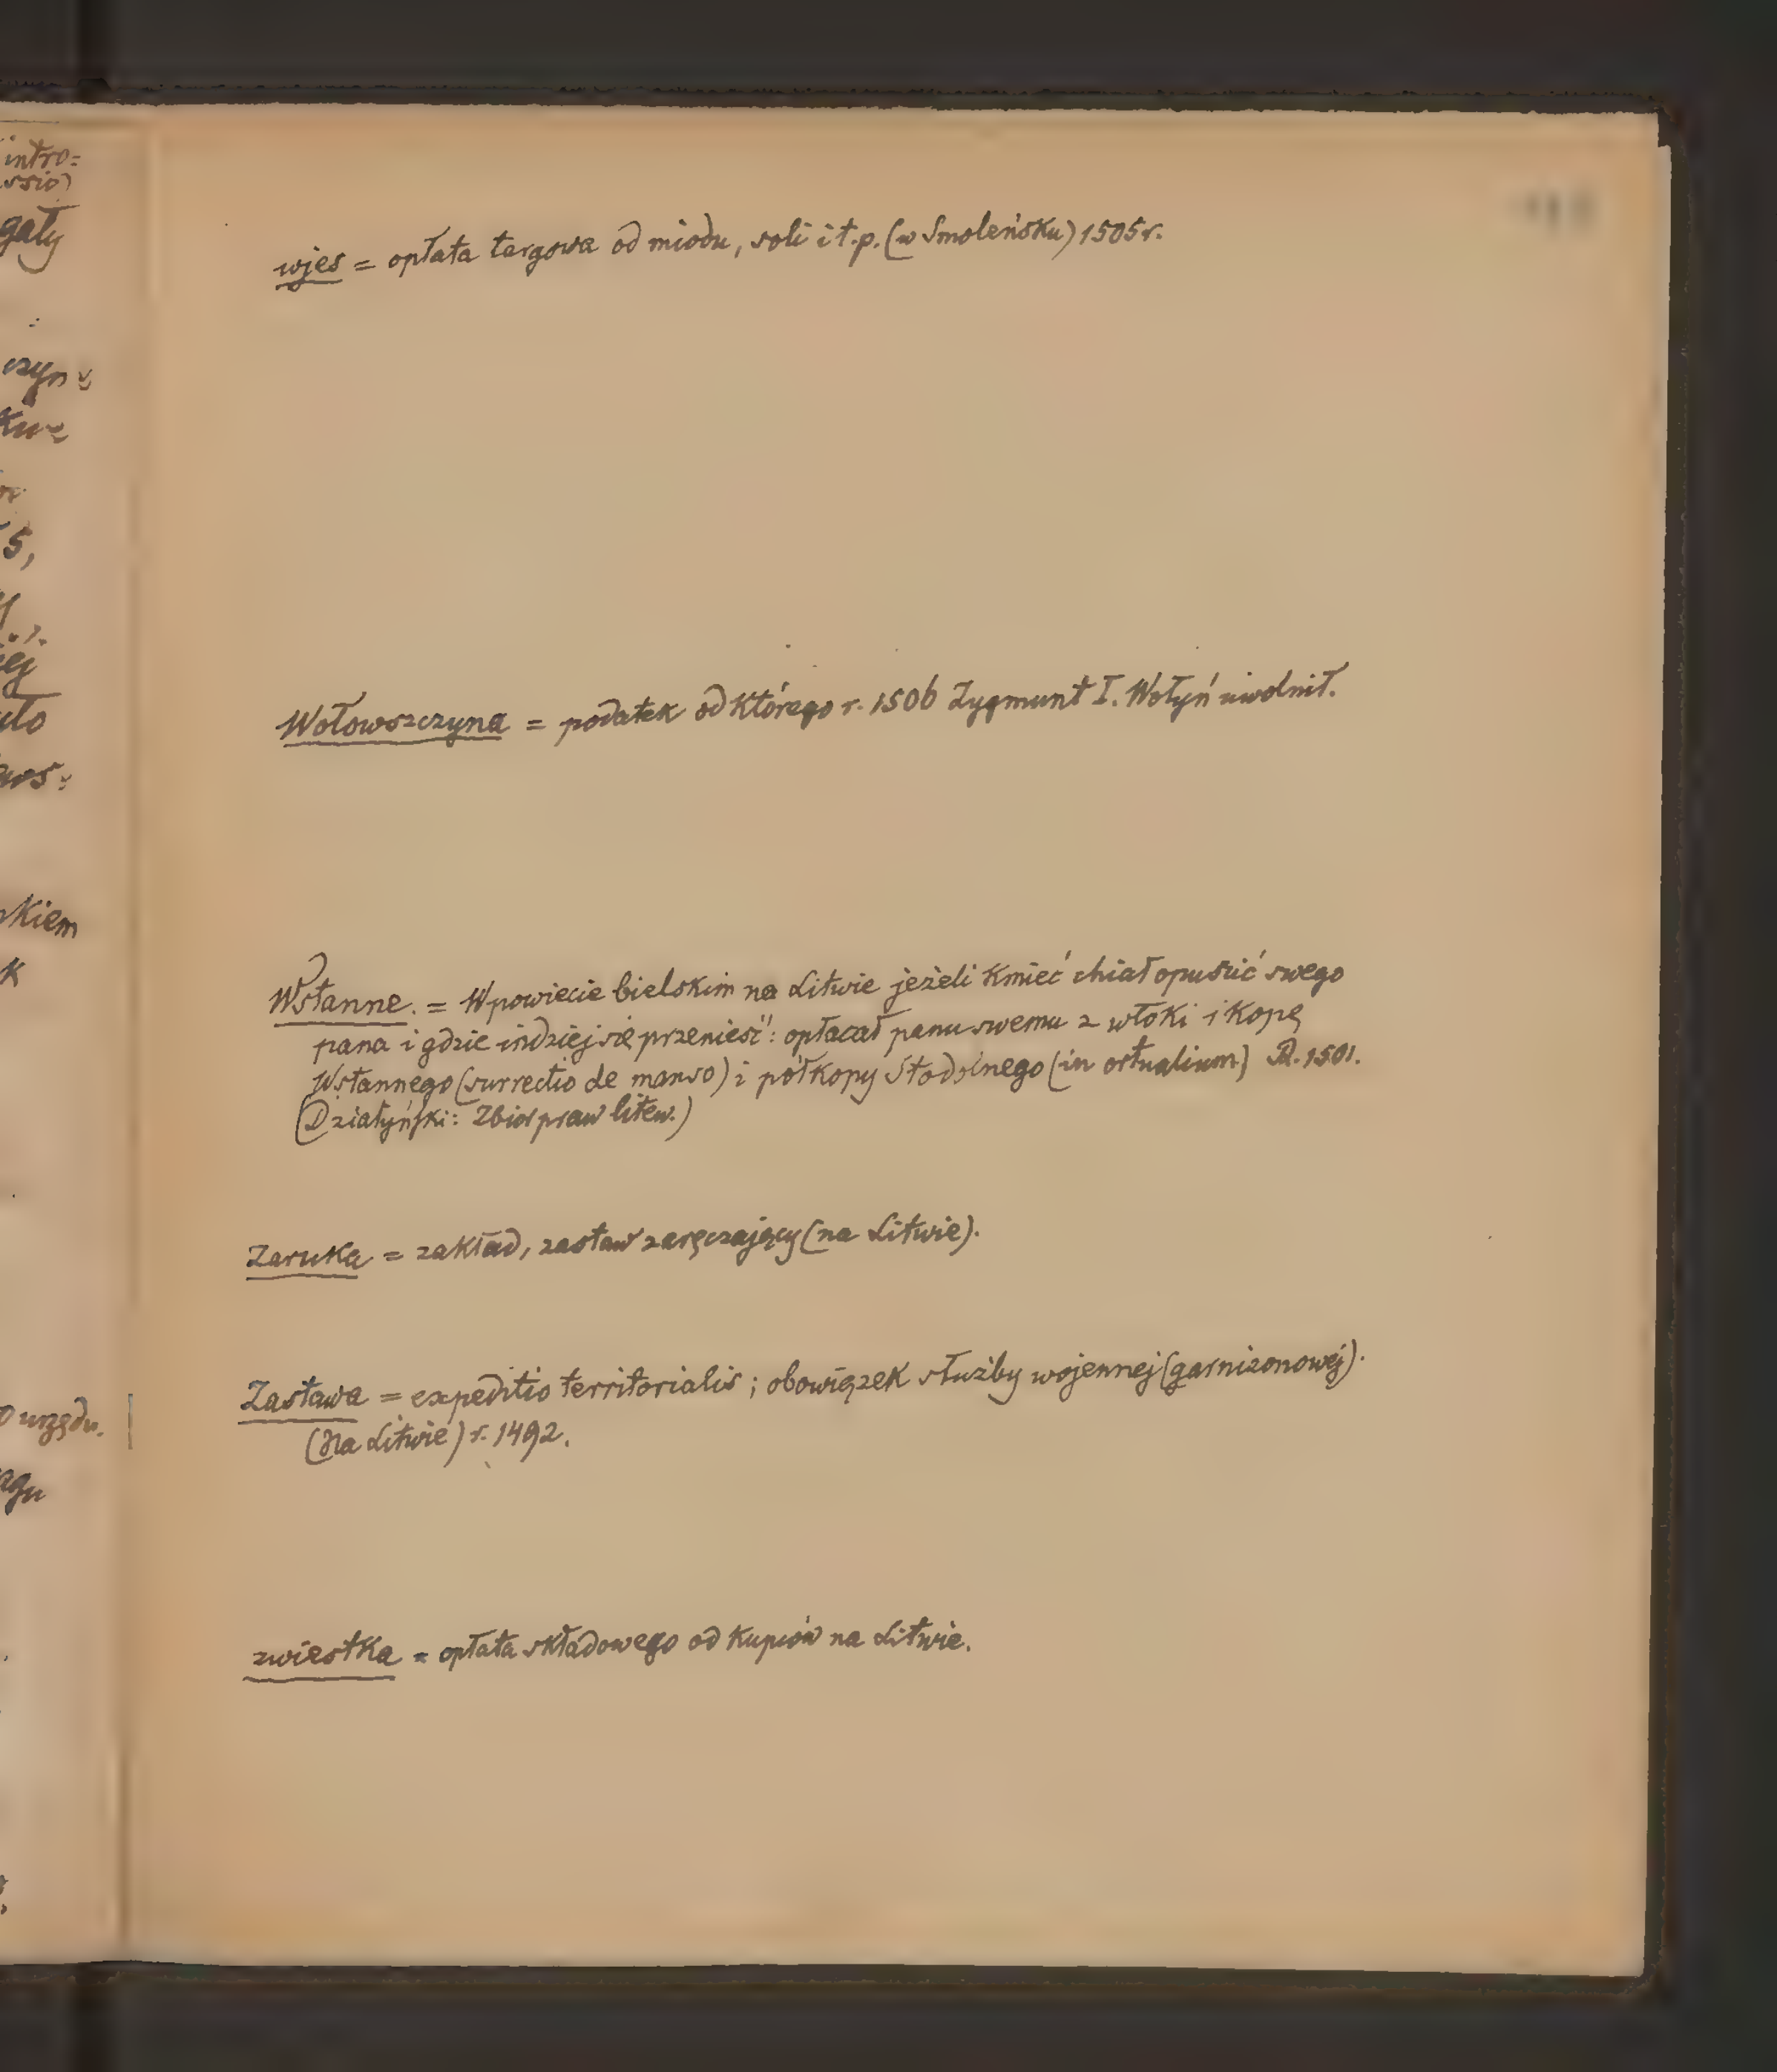 intro=
ssio)
gały
czyn=
kwe
5,
kiem
k
urzędu.
wjes = opłata targowa od miodu, soli i t.p. (w Smoleńsku) 1505 r.
Wołowszczyna = podatek od którego r. 1506 Zygmunt I. Wołyń uwolnił.
Wstanne. = W powiecie bielskim na Litwie jeżeli kmieć chiał opuścić swego
pana i gdzie indziej się przenieść: opłacał panu swemu z włóki i kopę
Wstannego (surrectio de manso) i półkopy Stodolnego (in ortualium) R. 1501.
(Działyński: Zbiór praw litew.)
Zaruka = zakład, zastaw zaręczający (na Litwie).
Zastawa = expeditio territorialis; obowięzek służby wojennej (garnizonowej).
(Na Litwie) r. 1492.
zwiestka = opłata składowego od kupców na Litwie.